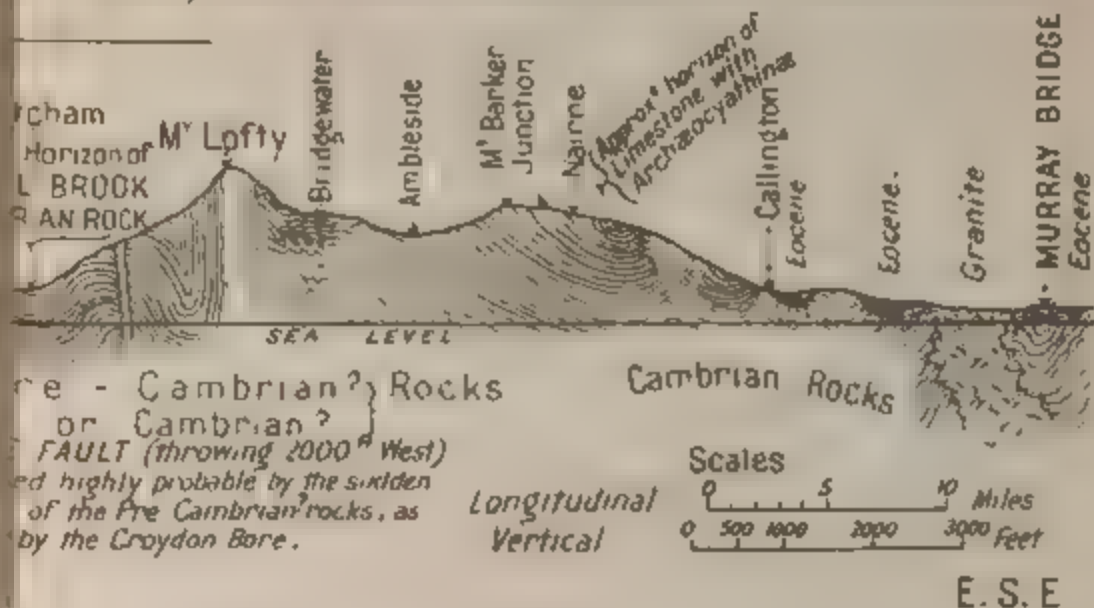 Mᵗ Lofty
Horizon of
BROOK
AN ROCK
Bridgewater
Ambleside
Mᵗ Barker
Junction
Nairne
Approxᵗ horizon of
Limestone with
Archæocyathinae
Callington
Eocene
Eocene.
Granite
MURRAY BRIDGE
Eocene
SEA LEVEL
re - Cambrian? } Rocks
or Cambrian?
Cambrian Rocks
FAULT (throwing 2000 ft West)
ed highly probable by the sudden
of the Pre Cambrian? rocks, as
by the Croydon Bore.
Scales
Longitudinal 0 5 10 Miles
Vertical 0 500 1000 2000 3000 Feet
E. S. E